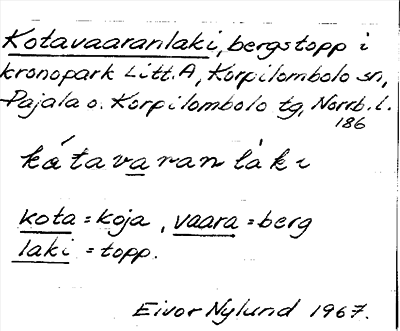 Kotavaaranlaki, bergstopp i
kronopark Litt. A, Korpilombolo sn,
Pajala o. Korpilombolo tg, Norrb. l.
186
kátavaranlàki
kota = koja, vaara = berg
laki = topp.
Eivor Nylund 1967.